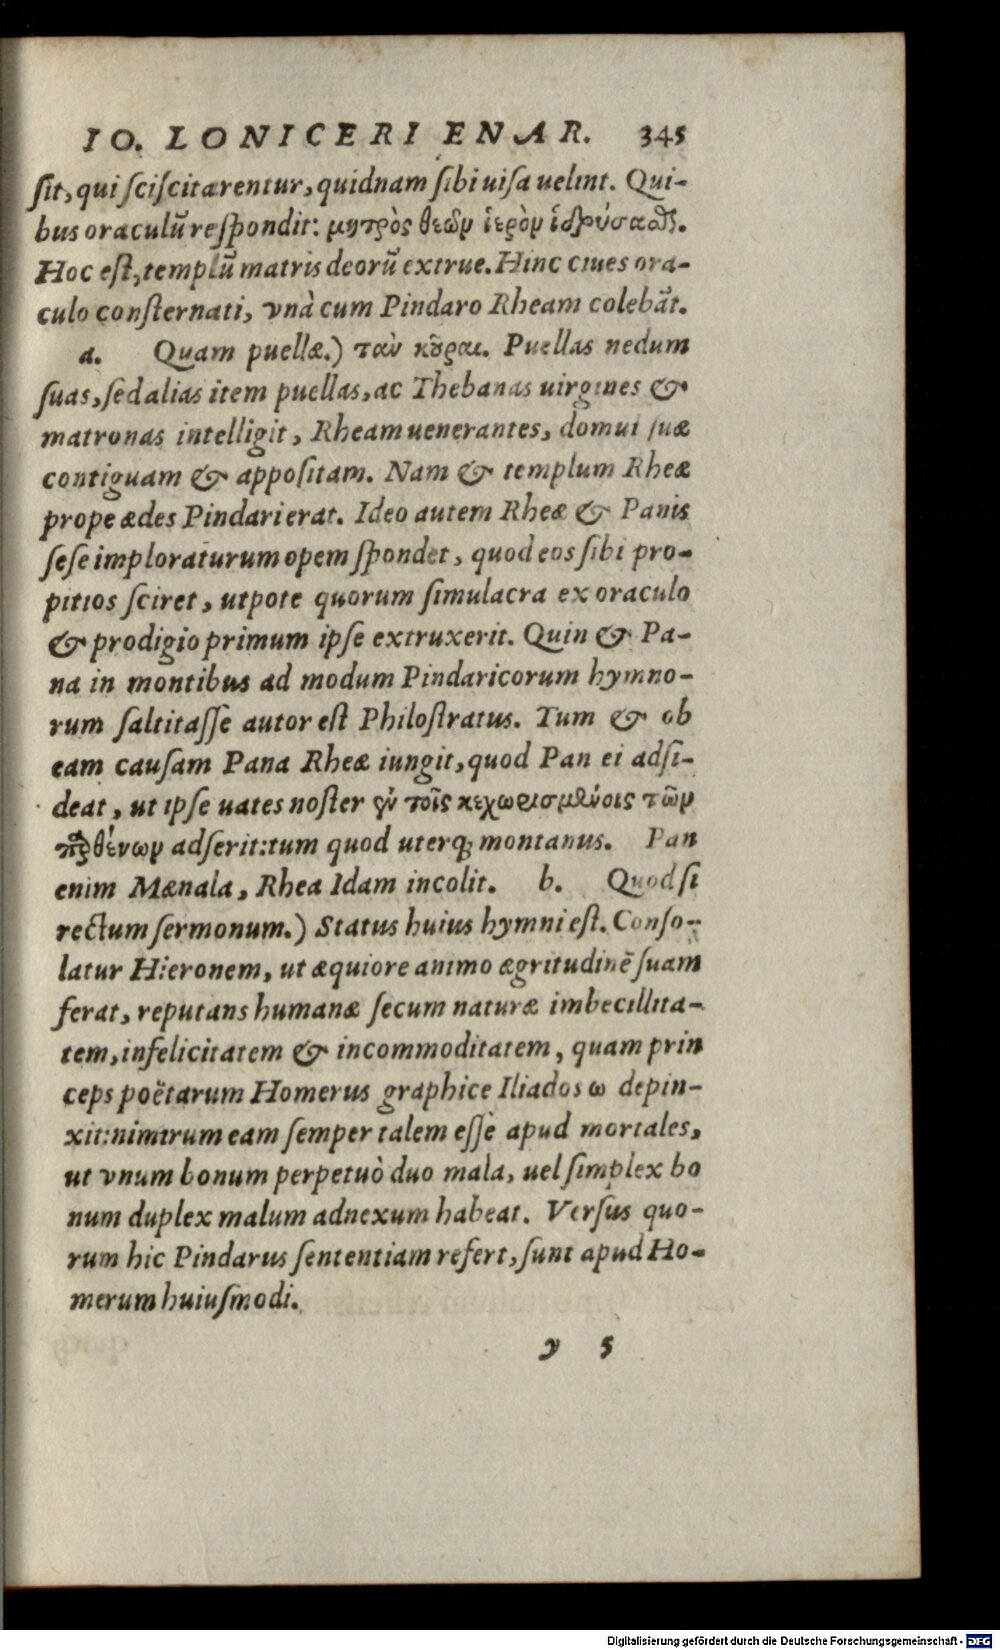 IO. LONICERI ENAR. 345
ſit, qui ſciſcitarentur, quidnam ſibi uiſa uelint. Qui-
bus oraculũ reſpondit: μητρὸς θεῶν ἱερὸν ἱδρύσαϑζ.
Hoc eſt, templũ matris deorũ extrue. Hinc ciues ora-
culo conſternati, vnà cum Pindaro Rheam colebãt.
a. Quam puellæ.) τὰν κοῦραι. Puellas nedum
ſuas, ſed alias item puellas, ac Thebanas uirgines &
matronas intelligit, Rheam uenerantes, domui ſuæ
contiguam & appoſitam. Nam & templum Rheæ
prope ædes Pindari erat. Ideo autem Rheæ & Panis
ſeſe imploraturum opem ſpondet, quod eos ſibi pro-
pitios ſciret, utpote quorum ſimulacra ex oraculo
& prodigio primum ipſe extruxerit. Quin & Pa-
na in montibus ad modum Pindaricorum hymno-
rum ſaltitaſſe autor eſt Philoſtratus. Tum & ob
eam cauſam Pana Rheæ iungit, quod Pan ei adſi-
deat, ut ipſe uates noſter ἐν τοῖς κεχωρισμένοις τῶν
παρθένων adſerit: tum quod uterq; montanus. Pan
enim Mænala, Rhea Idam incolit. b. Quod ſi
rectum ſermonum.) Status huius hymni eſt. Conſo-
latur Hieronem, ut æquiore animo ægritudinẽ ſuam
ferat, reputans humanæ ſecum naturæ imbecillita-
tem, infelicitatem & incommoditatem, quam prin
ceps poëtarum Homerus graphice Iliados ω depin-
xit: nimirum eam ſemper talem eſſe apud mortales,
ut vnum bonum perpetuò duo mala, uel ſimplex bo
num duplex malum adnexum habeat. Verſus quo-
rum hic Pindarus ſententiam refert, ſunt apud Ho-
merum huiuſmodi.
y 5
Digitalisierung gefördert durch die Deutsche Forschungsgemeinschaft - DFG